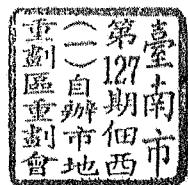 臺南市
第127期佃西
(一)自辦市地
重劃區重劃會